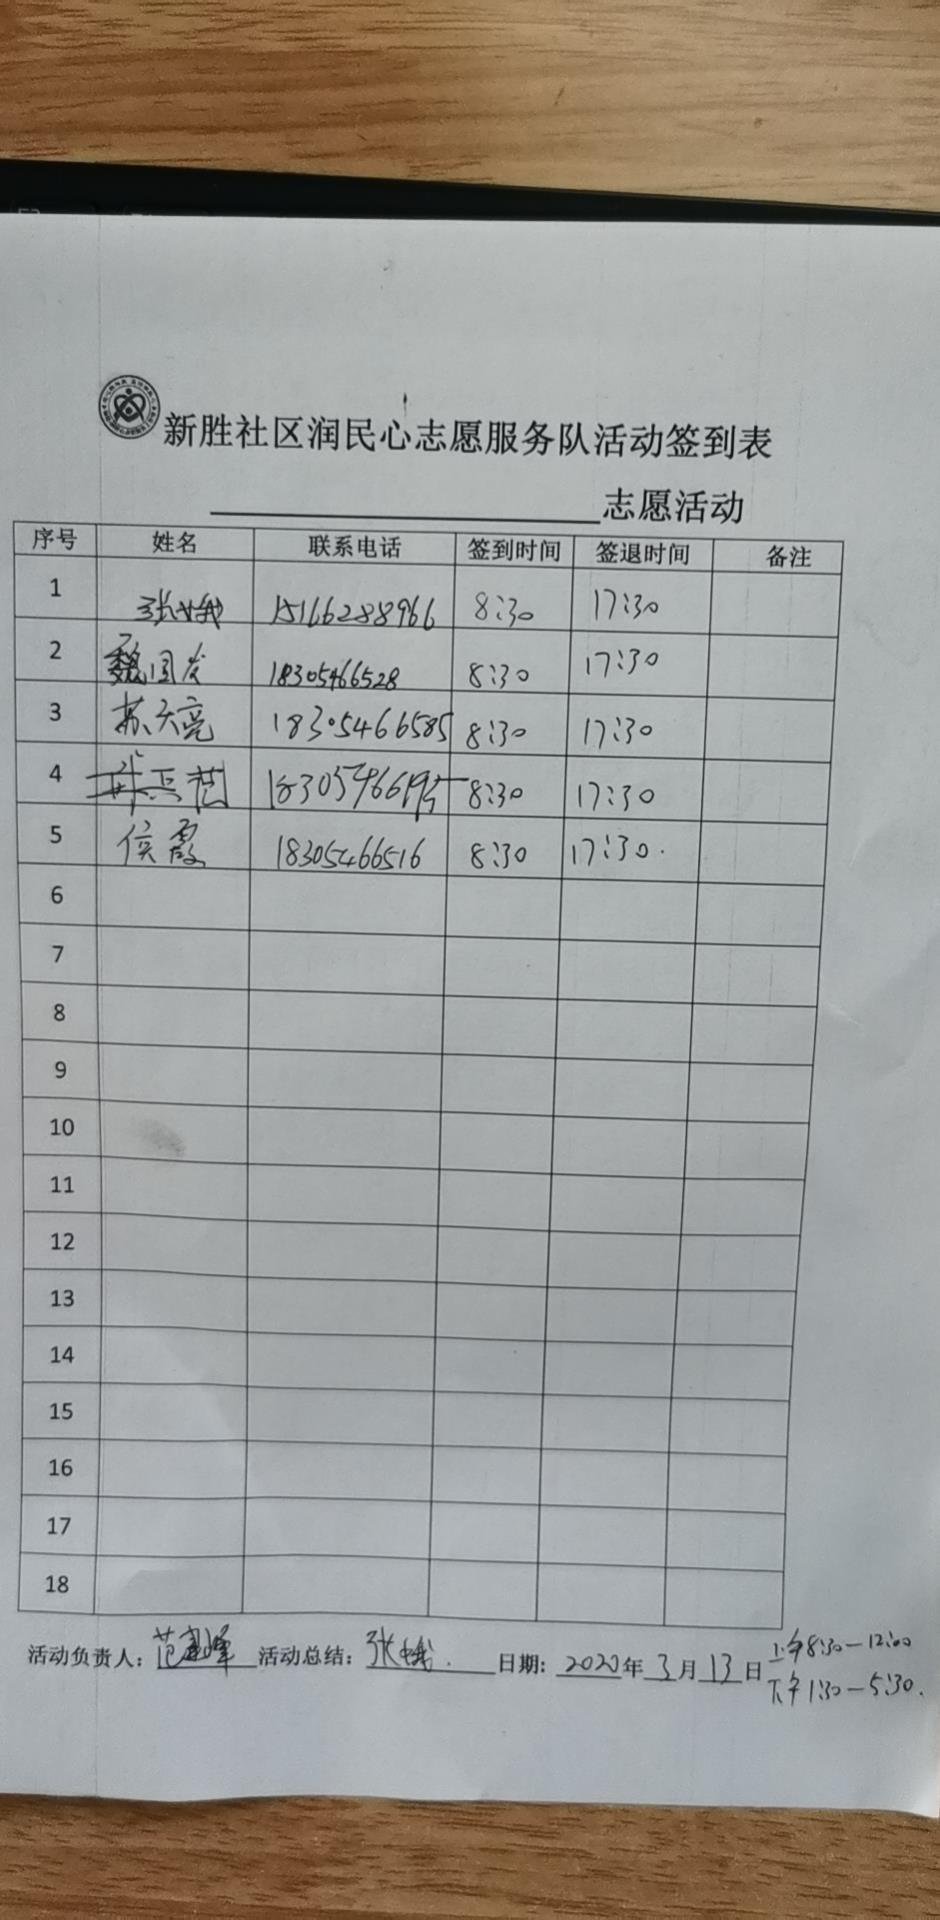 新胜社区润民心志愿服务队活动签到表
志愿活动
序号 姓名 联系电话 签到时间 签退时间 备注
1 张娥 15166288966 8:30 17:30
2 魏国发 18305466528 8:30 17:30
3 苏天亮 18305466585 8:30 17:30
4 8:30 17:30
5 侯霞 18305466516 8:30 17:30.
6
7
8
9
10
11
12
13
14
15
16
17
18
活动负责人: 范 峰 活动总结: 张娥. 日期: 2020年3月13日
上午8:30—12:00
下午1:30—5:30.